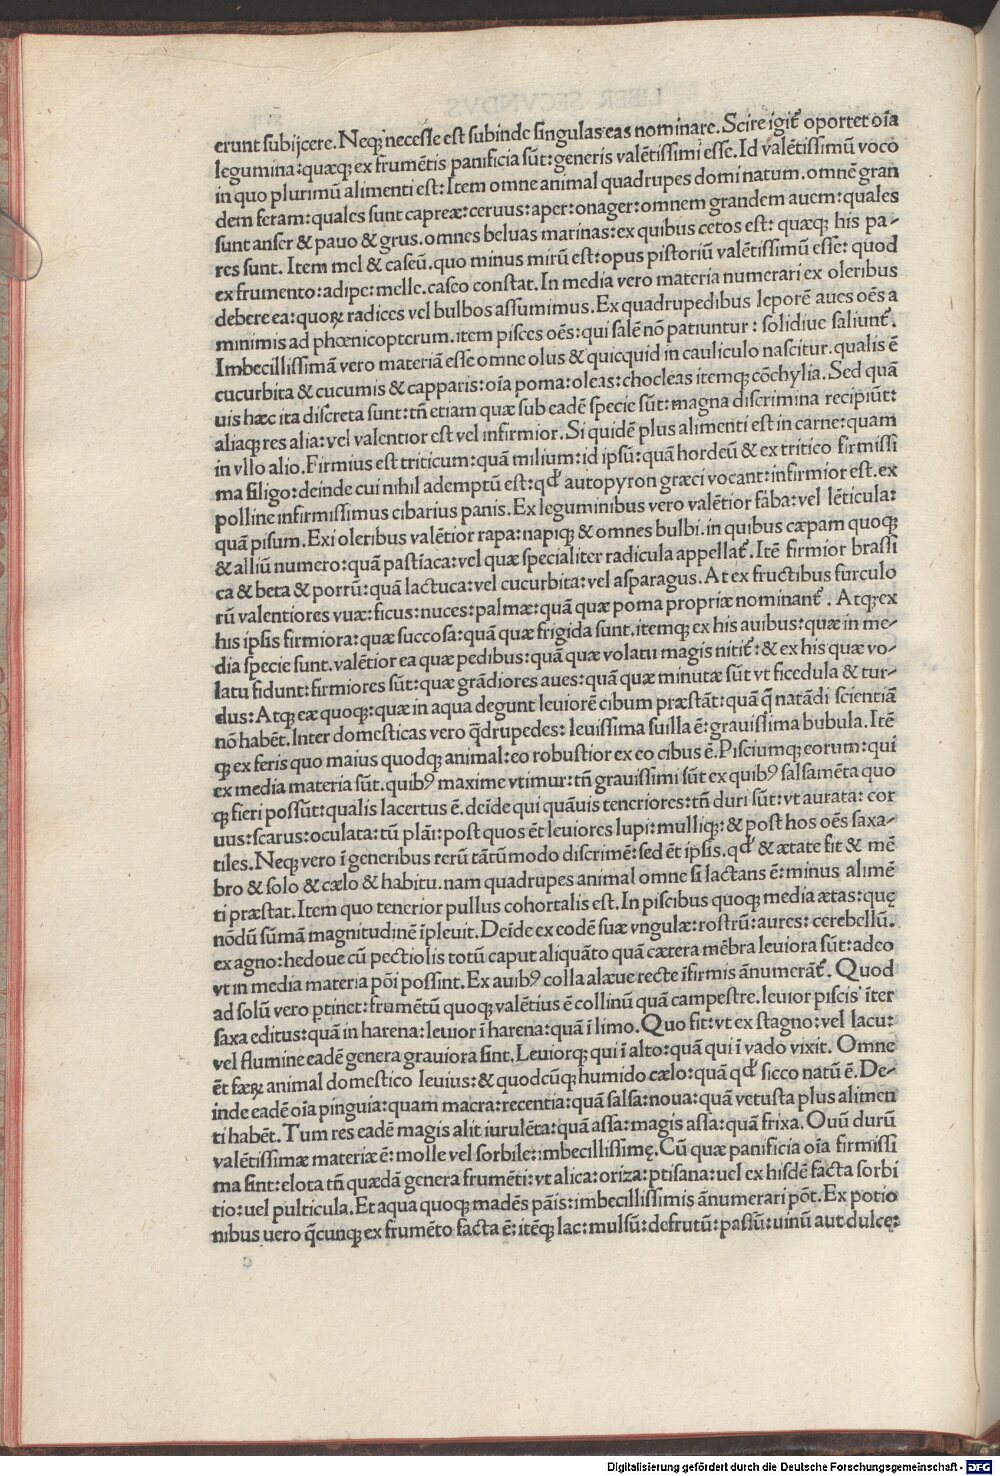 erunt subijcere. Neqꝫ necesse est subinde singulas eas nominare. Scire igit᷑ oportet oı̄a
legumina: quæqꝫ ex frumētis panificia sūt: generis valētissimi esse. Id valētissimū voco
in quo plurimū alimenti est: Item omne animal quadrupes domi natum. omnē gran
dem feram: quales sunt capreæ: ceruus: aper: onager: omnem grandem auem: quales
sunt anser & pauo & grus. omnes beluas marinas: ex quibus cetos est: quæqꝫ his pa-
res sunt. Item mel & caseū. quo minus mirū est: opus pistoriū valētissimū esse: quod
ex frumento: adipe: melle. caseo constat. In media vero materia numerari ex oleribus
debere ea: quoꝝ radices vel bulbos assumimus. Ex quadrupedibus leporē aues oēs a
minimis ad phœnicopterum. item pisces oēs: qui salē nō patiuntur: solidiue saliunt᷑.
Imbecillissimā vero materiā esse omne olus & quicquid in cauliculo nascitur. qualis ē
cucurbita & cucumis & capparis: oı̄a poma: oleas: chocleas itemqꝫ cōchylia. Sed quā
uis hæc ita discreta sunt: tn̄ etiam quæ sub eadē specie sūt: magna discrimina recipiūt:
aliaqꝫ res alia: vel valentior est vel infirmior. Si quidē plus alimenti est in carne: quam
in vllo alio. Firmius est triticum: quā milium: id ipsū: quā hordeū & ex tritico firmissi
ma siligo: deinde cui nihil ademptū est: qd̛ autopyron græci vocant: infirmior est. ex
polline infirmissimus cibarius panis. Ex leguminibus vero valētior faba: vel lēticula:
quā pisum. Exi oleribus valētior rapa: napiqꝫ & omnes bulbi. in quibus cæpam quoqꝫ
& alliū numero: quā pastīaca: vel quæ specialiter radicula appellat᷑. Itē firmior brassi
ca & beta & porrū: quā lactuca: vel cucurbita: vel asparagus. At ex fructibus surculo
rū valentiores vuæ: ficus: nuces: palmæ: quā quæ poma propriæ nominant᷑. Atqꝫ ex
his ipsis firmiora: quæ succosa: quā quæ frigida sunt. itemqꝫ ex his auibus: quæ in me-
dia specie sunt. valētior ea quæ pedibus: quā quæ volatu magis nitit᷑: & ex his quæ vo-
latu fidunt: firmiores sūt: quæ grādiores aues: quā quæ minutæ sūt vt ficedula & tur-
dus: Atqꝫ eæ quoqꝫ: quæ in aqua degunt leuiorē cibum præstāt: quā q̄ natādi scientiā
nō habēt. Inter domesticas vero q̄drupedes: leuissima suilla ē: grauissima bubula. Itē
qꝫ ex feris quo maius quodqꝫ animal: eo robustior ex eo cibus ē. Pisciumqꝫ eorum: qui
ex media materia sūt. quibꝰ maxime vtimur: tn̄ grauissimi sūt ex quibꝰ salsamēta quo
qꝫ fieri possūt: qualis lacertus ē. deīde qui quāuis teneriores: tn̄ duri sūt: vt aurata: cor
uus: scarus: oculata: tū plāi: post quos ēt leuiores lupi: mulliqꝫ: & post hos oēs saxa-
tiles. Neqꝫ vero ī generibus rerū tātūmodo discrimē: sed ēt ipsis. qd̛ & ætate fit & mē
bro & solo & cælo & habitu. nam quadrupes animal omne si lactans ē: minus alimē
ti præstat. Item quo tenerior pullus cohortalis est. In piscibus quoqꝫ media ætas: quę
nōdū sūmā magnitudinē īpleuit. Deīde ex eodē suæ vngulæ: rostrū: aures: cerebellū.
ex agno: hedoue cū pectiolis totū caput aliquāto quā cætera mēbra leuiora sūt: adeo
vt in media materia pōi possint. Ex auibꝰ colla alæue recte īfirmis ānumerāt᷑. Quod
ad solū vero ꝑtinet: frumētū quoqꝫ valētius ē collinū quā campestre. leuior piscis īter
saxa editus: quā in harena: leuior ī harena: quā ī limo. Quo fit: vt ex stagno: vel lacu:
vel flumine eadē genera grauiora sint. Leuiorqꝫ qui ī alto: quā qui ī vado vixit. Omne
ēt fæꝝ animal domestico leuius: & quodcūqꝫ humido cælo: quā qd̛ sicco natū ē. De-
inde eadē oı̄a pinguia: quam macra: recentia: quā salsa: noua: quā vetusta plus alimen
ti habēt. Tum res eadē magis alit iurulēta: quā assa: magis assa: quā frixa. Ouū durū
valētissimæ materiæ ē: molle vel sorbile: imbecillissimę. Cū quæ panificia oı̄a firmissi
ma sint: elota tn̄ quædā genera frumēti: vt alica: oriza: ptisana: uel ex hisdē facta sorbi
tio: uel pulticula. Et aqua quoqꝫ madēs pāis: imbecillissimis ānumerari pōt. Ex potio
nibus uero q̄cunqꝫ ex frumēto facta ē: itēqꝫ lac: mulsū: defrutū: passū: uinū aut dulcę:
Digitalisierung gefördert durch die Deutsche Forschungsgemeinschaft - DFG